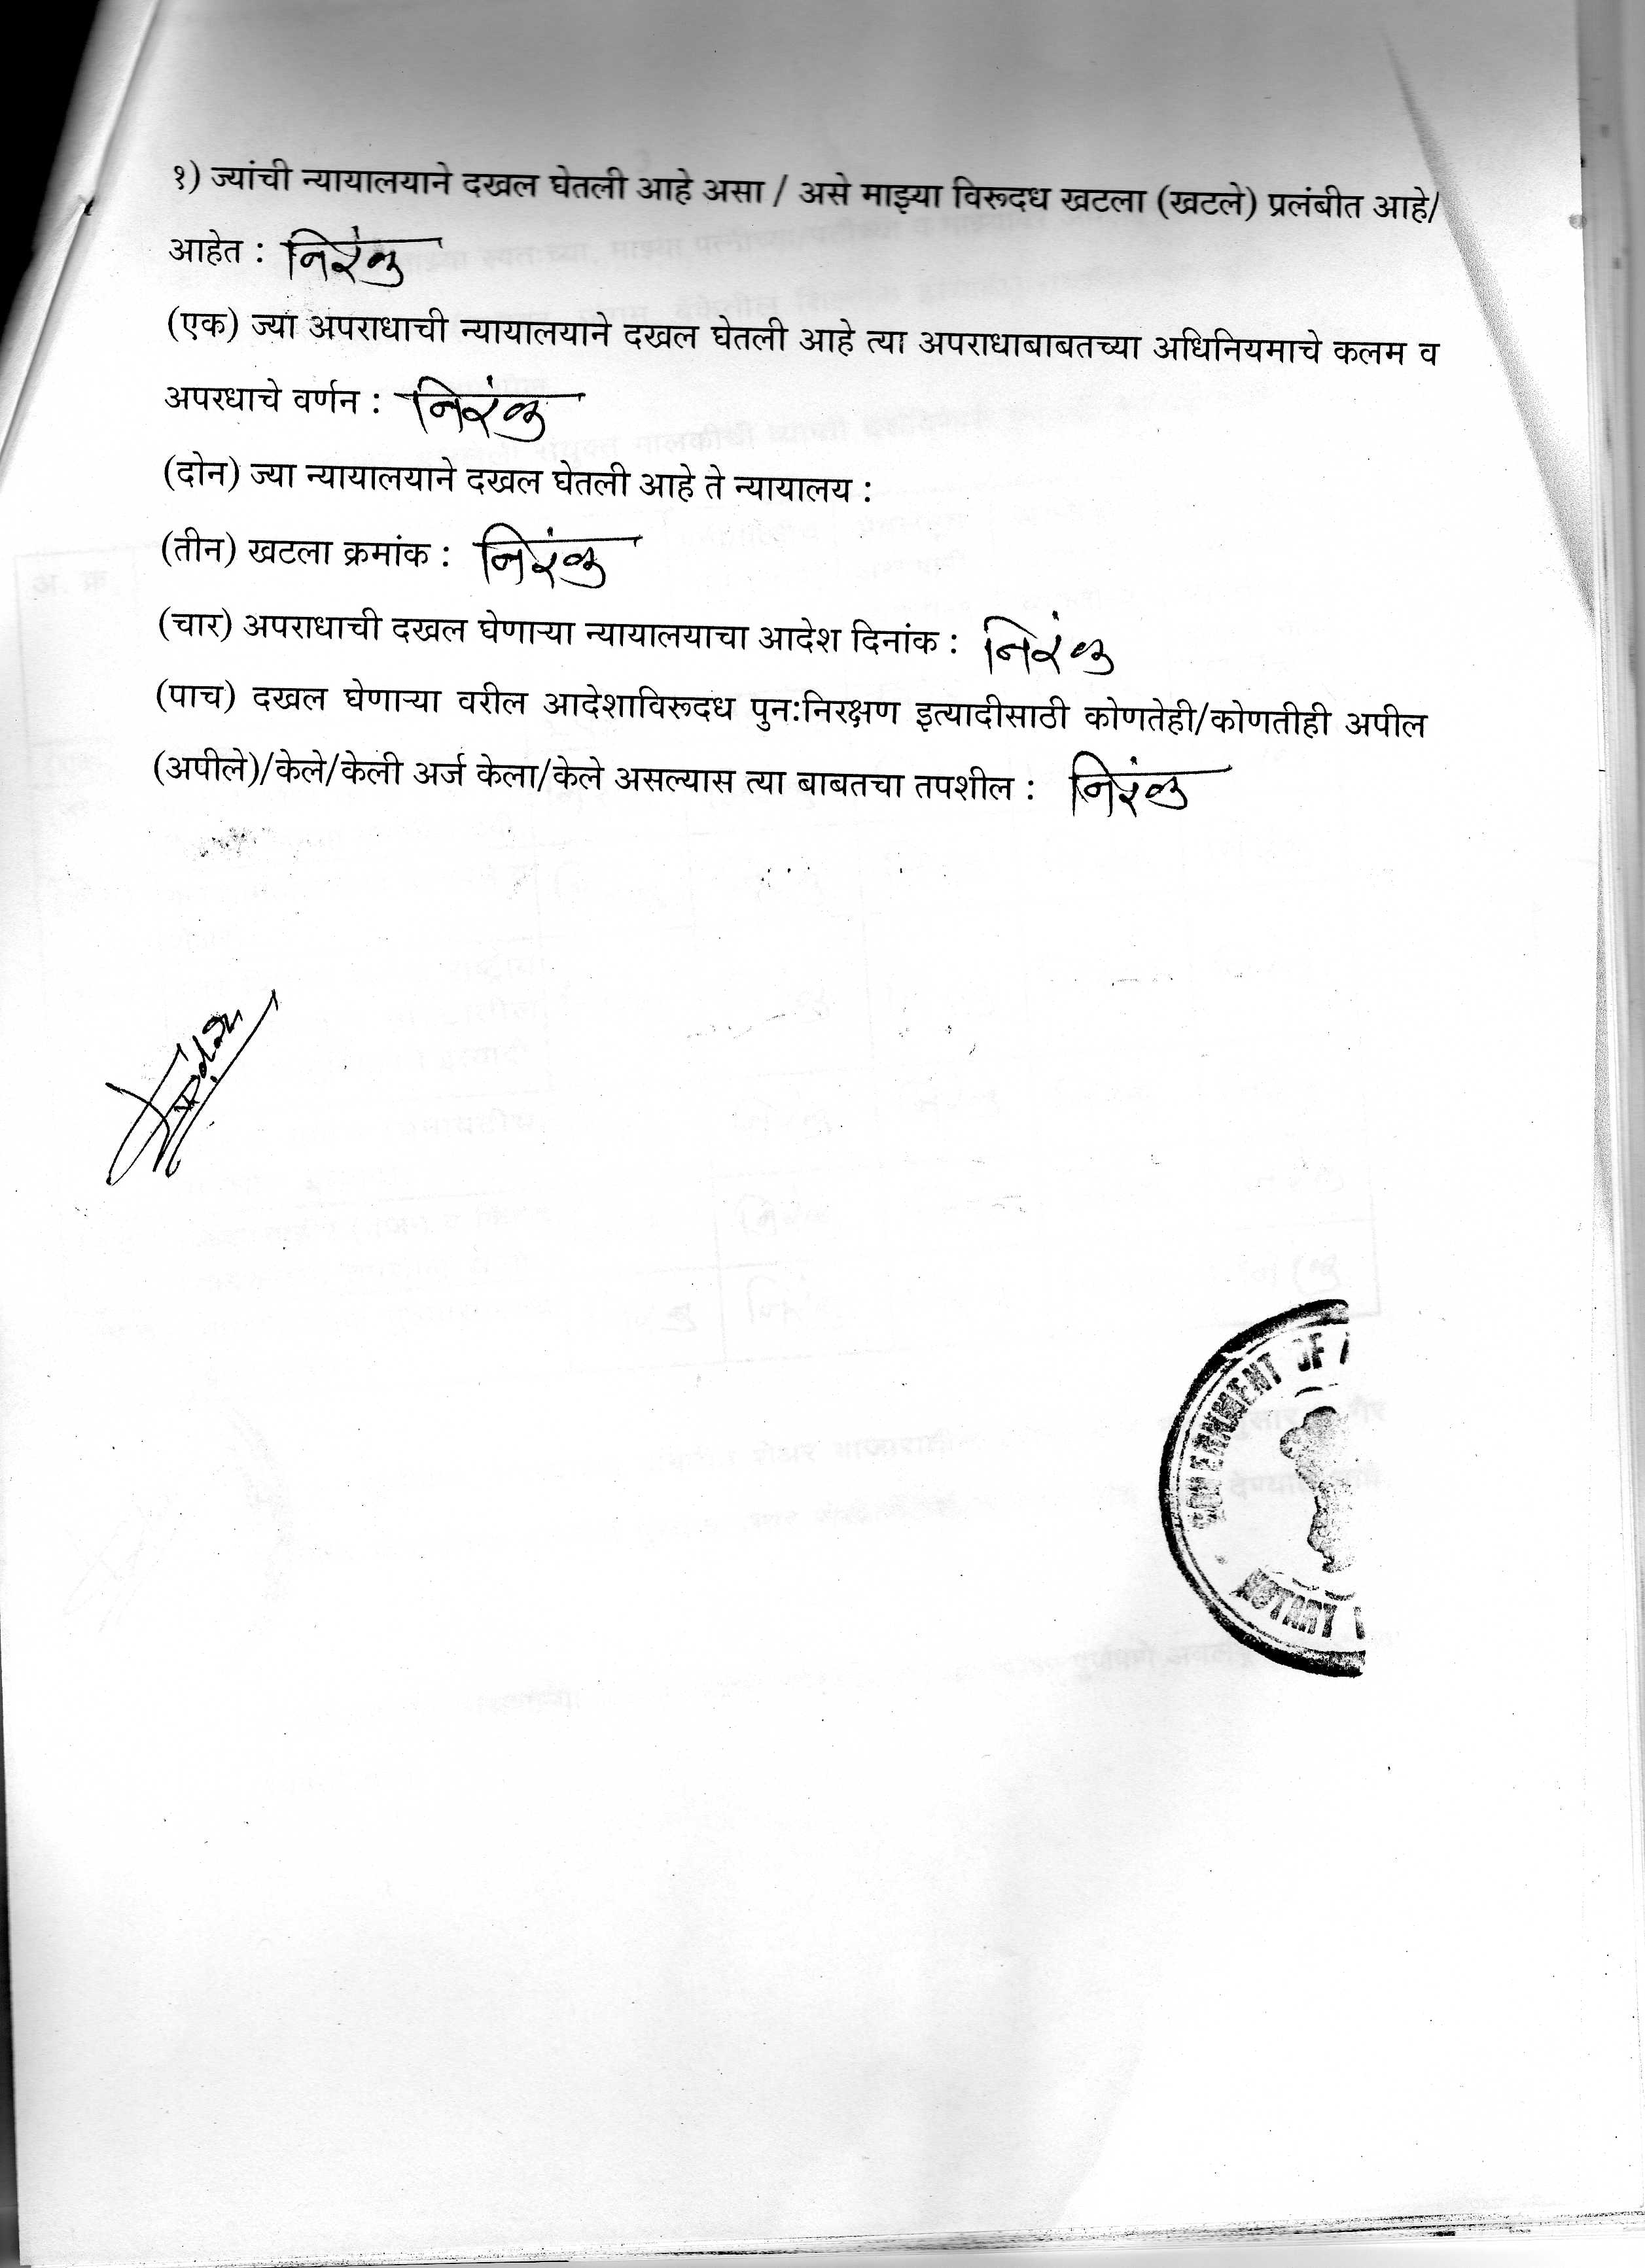 १) ज्यांची न्यायालयाने दखल घेतली आहे असा / असे माझ्या विरूदध खटला (खटले) प्रलंबीत आहे/
आहेत : निरंक
(एक) ज्या अपराधाची न्यायालयाने दखल घेतली आहे त्या अपराधाबाबतच्या अधिनियमाचे कलम व
अपरधाचे वर्णन : निरंक
(दोन) ज्या न्यायालयाने दखल घेतली आहे ते न्यायालय :
(तीन) खटला क्रमांक : निरंक
(चार) अपराधाची दखल घेणाऱ्या न्यायालयाचा आदेश दिनांक : निरंक
(पाच) दखल घेणाऱ्या वरील आदेशाविरूदध पुन:निरक्षण इत्यादीसाठी कोणतेही/कोणतीही अपील
(अपीले)/केले/केली अर्ज केला/केले असल्यास त्या बाबतचा तपशील : निरंक
GOVERNMENT OF
NOTARY